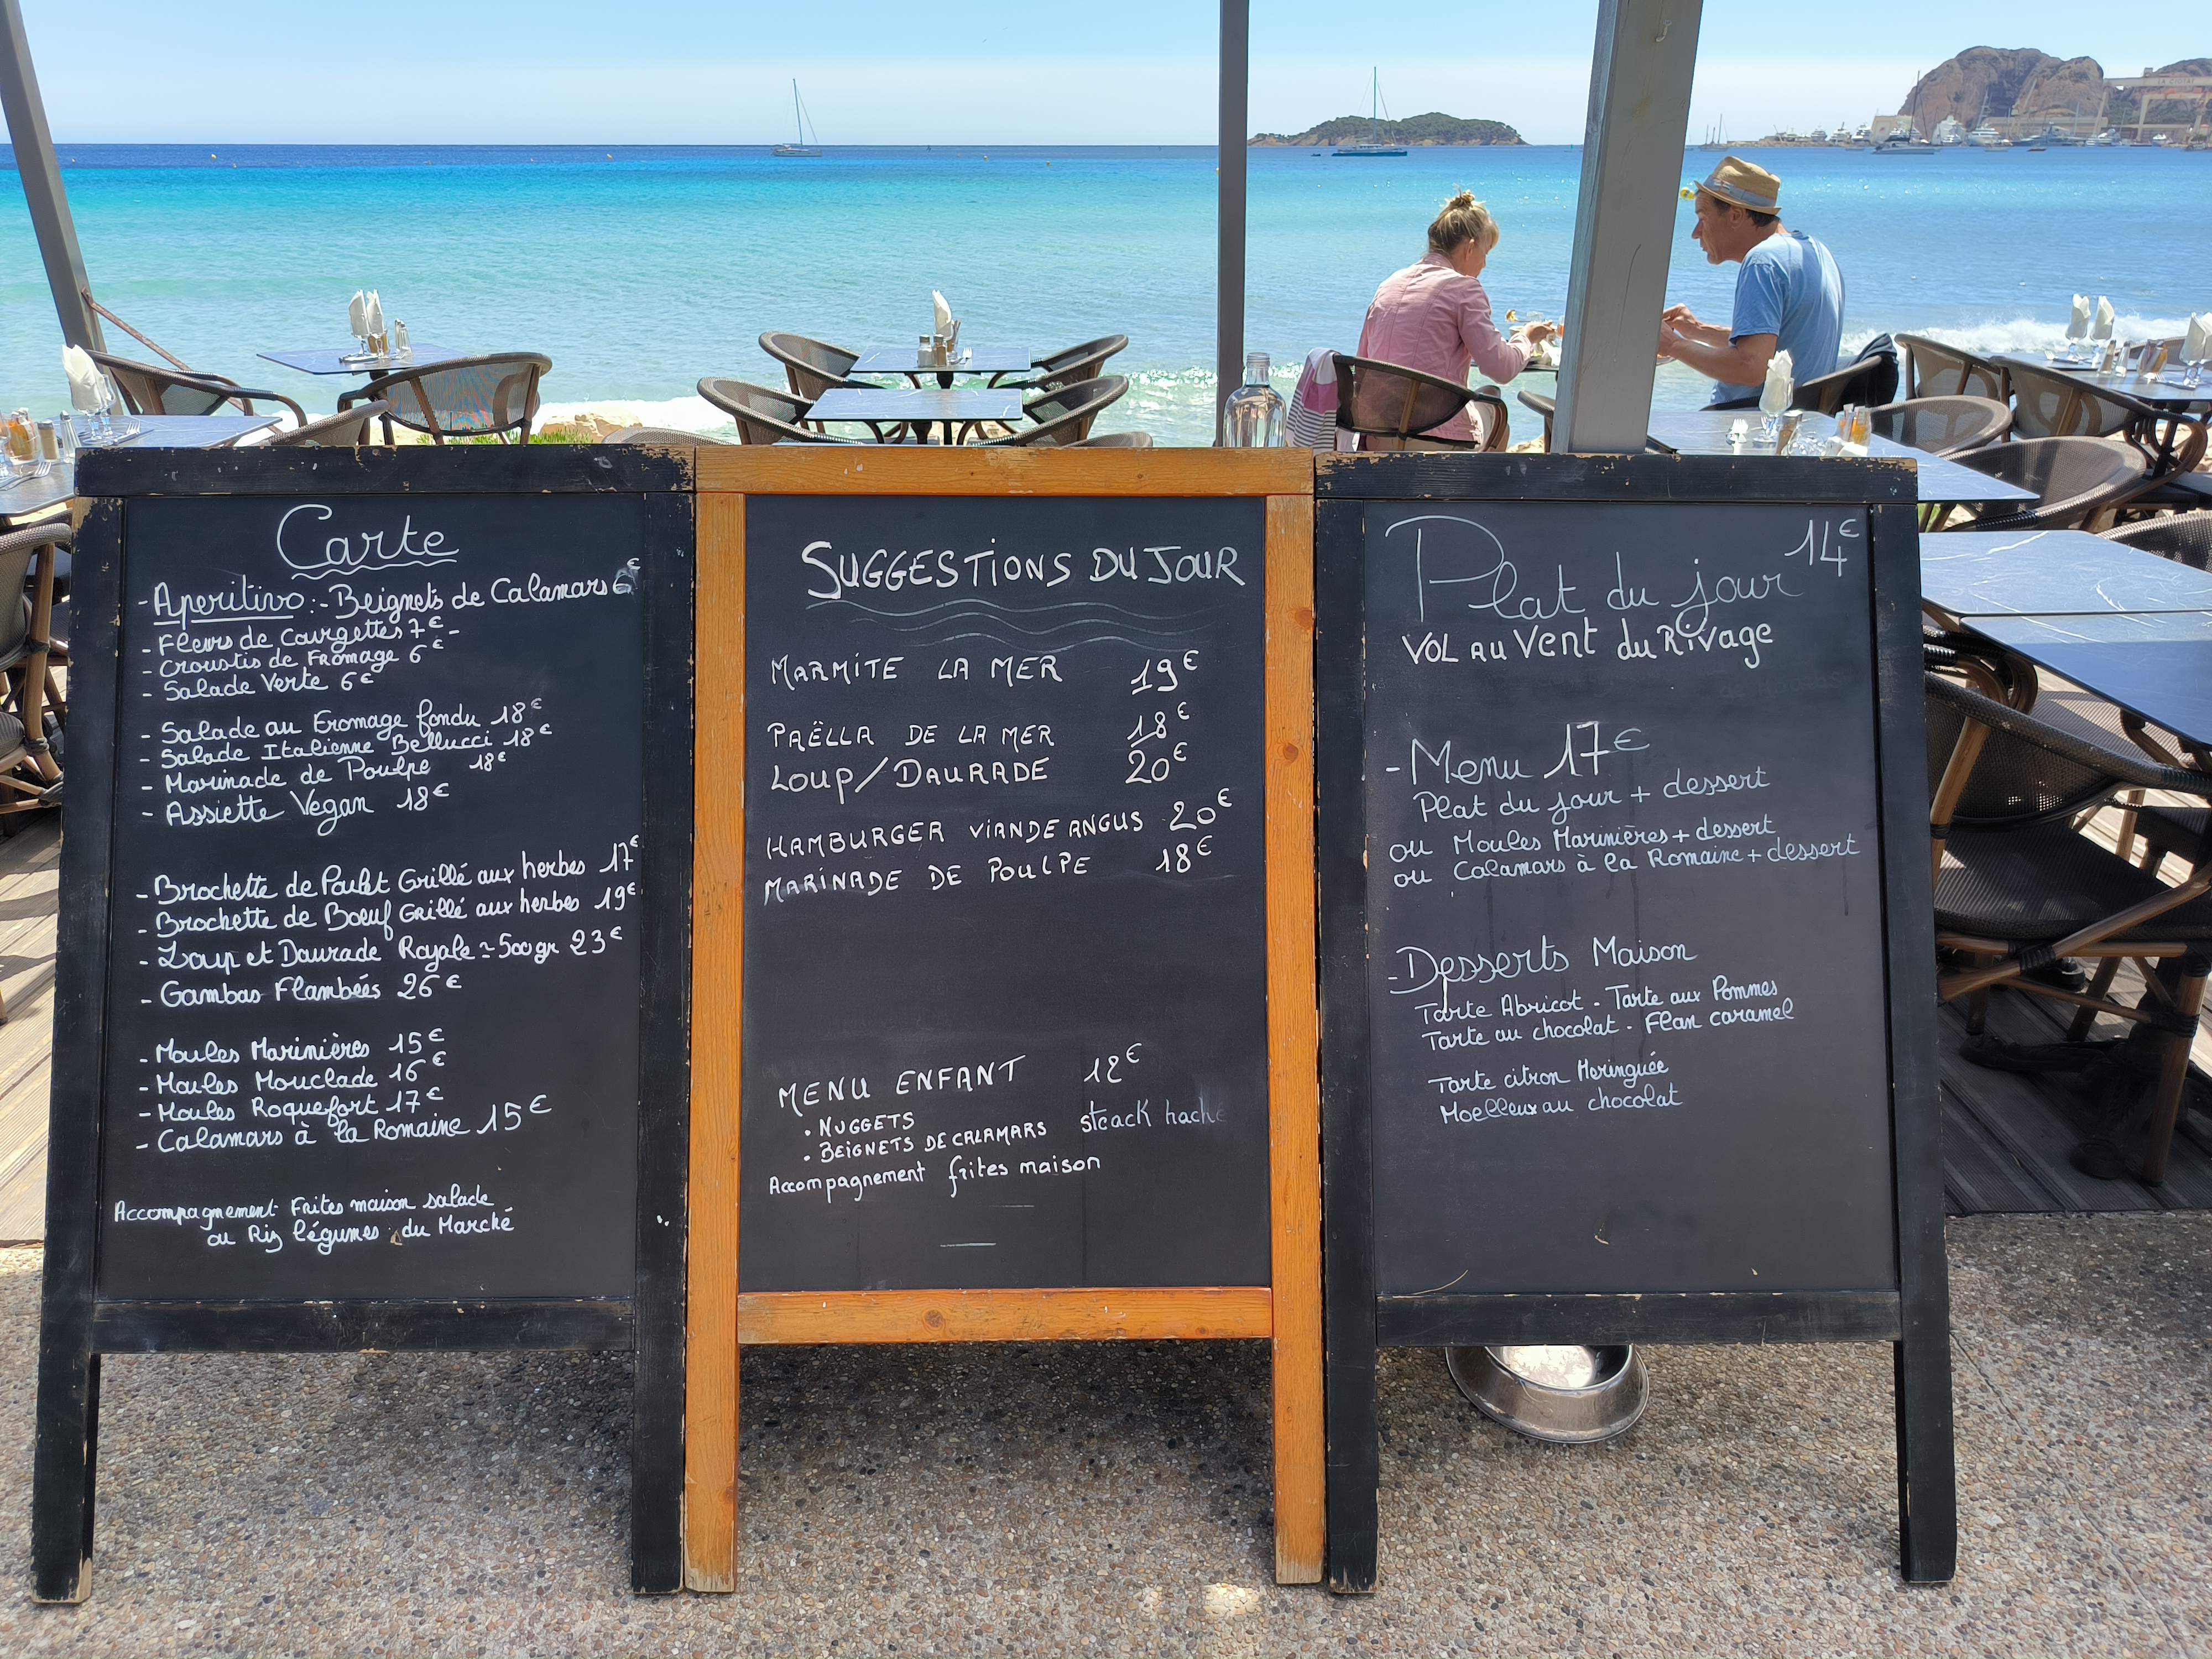 Carte
- Aperitivo : - Beignets de Calamars 6€
- Fleurs de Courgettes 7€ -
- Croustis de Fromage 6€
- Salade Verte 6€
- Salade au Fromage fondu 18€
- Salade Italienne Bellucci 18€
- Marinade de Poulpe 18€
- Assiette Vegan 18€
- Brochette de Poulet Grillé aux herbes 17€
- Brochette de Boeuf Grillé aux herbes 19€
- Loup et Daurade Royale ≃ 500gr 23€
- Gambas Flambées 26€
- Moules Marinières 15€
- Moules Mouclade 16€
- Moules Roquefort 17€
- Calamars à la Romaine 15€
Accompagnement Frites maison salade
ou Riz légumes du Marché
SUGGESTIONS DU JOUR
MARMITE LA MER 19€
PAËLLA DE LA MER 18€
LOUP/DAURADE 20€
HAMBURGER VIANDE ANGUS 20€
MARINADE DE POULPE 18€
MENU ENFANT 12€
• NUGGETS steack haché
• BEIGNETS DE CALAMARS
Accompagnement frites maison
Plat du jour 14€
VOL AU VENT du RIVAGE
- Menu 17€
Plat du jour + dessert
ou Moules Marinières + dessert
ou Calamars à la Romaine + dessert
- Desserts Maison
Tarte Abricot - Tarte aux Pommes
Tarte au chocolat - Flan caramel
Tarte citron Meringuée
Moelleux au chocolat